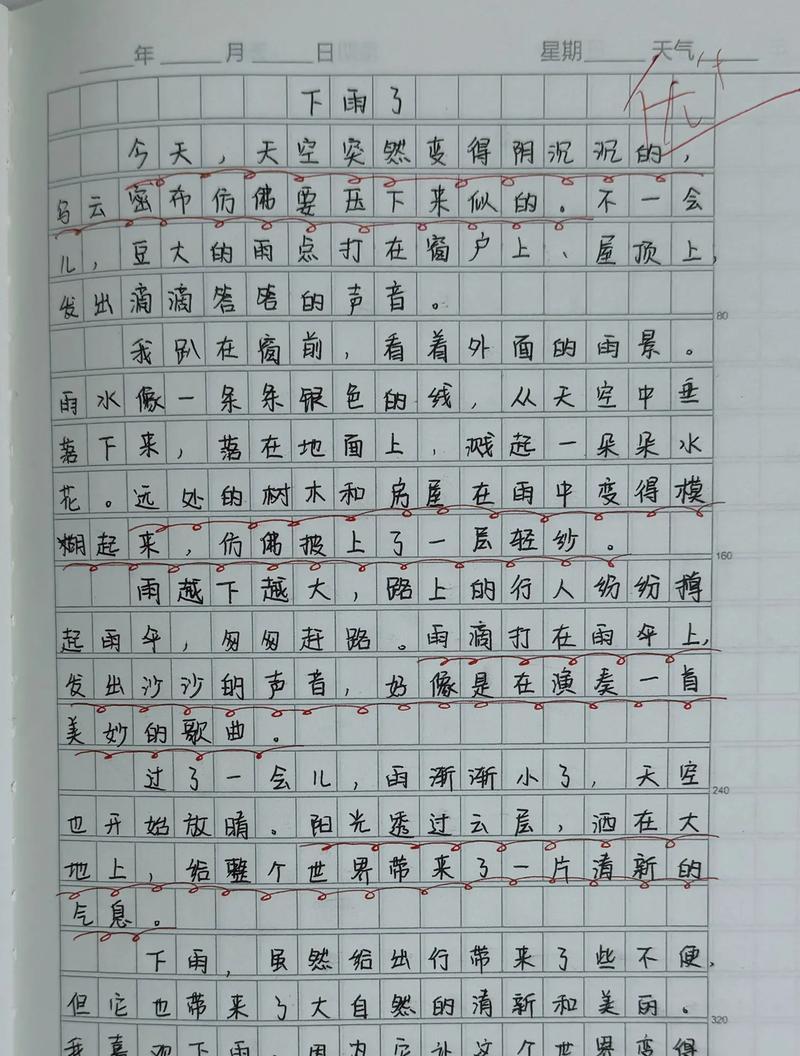 年 月 日 星期 天气
优+
下雨了
今天，天空突然变得阴沉沉的，
乌云密布仿佛要压下来似的。不一会
儿，豆大的雨点打在窗户上、屋顶上，
发出滴滴答答的声音。
80
我趴在窗前，看着外面的雨景。
雨水像一条条银色的线，从天空中垂
落下来，落在地面上，溅起一朵朵水
花。远处的树木和房屋在雨中变得模
糊起来，仿佛披上了一层轻纱。
160
雨越下越大，路上的行人纷纷撑
起雨伞，匆匆赶路。雨滴打在雨伞上，
发出沙沙的声音，好像是在演奏一首
美妙的歌曲。
过了一会儿，雨渐渐小了，天空
240
也开始放晴。阳光透过云层，洒在大
地上，给整个世界带来了一片清新的
气息。
下雨，虽然给出行带来了些不便，
但它也带来了大自然的清新和美丽。
320
我喜欢下雨，因为它让这个世界变得